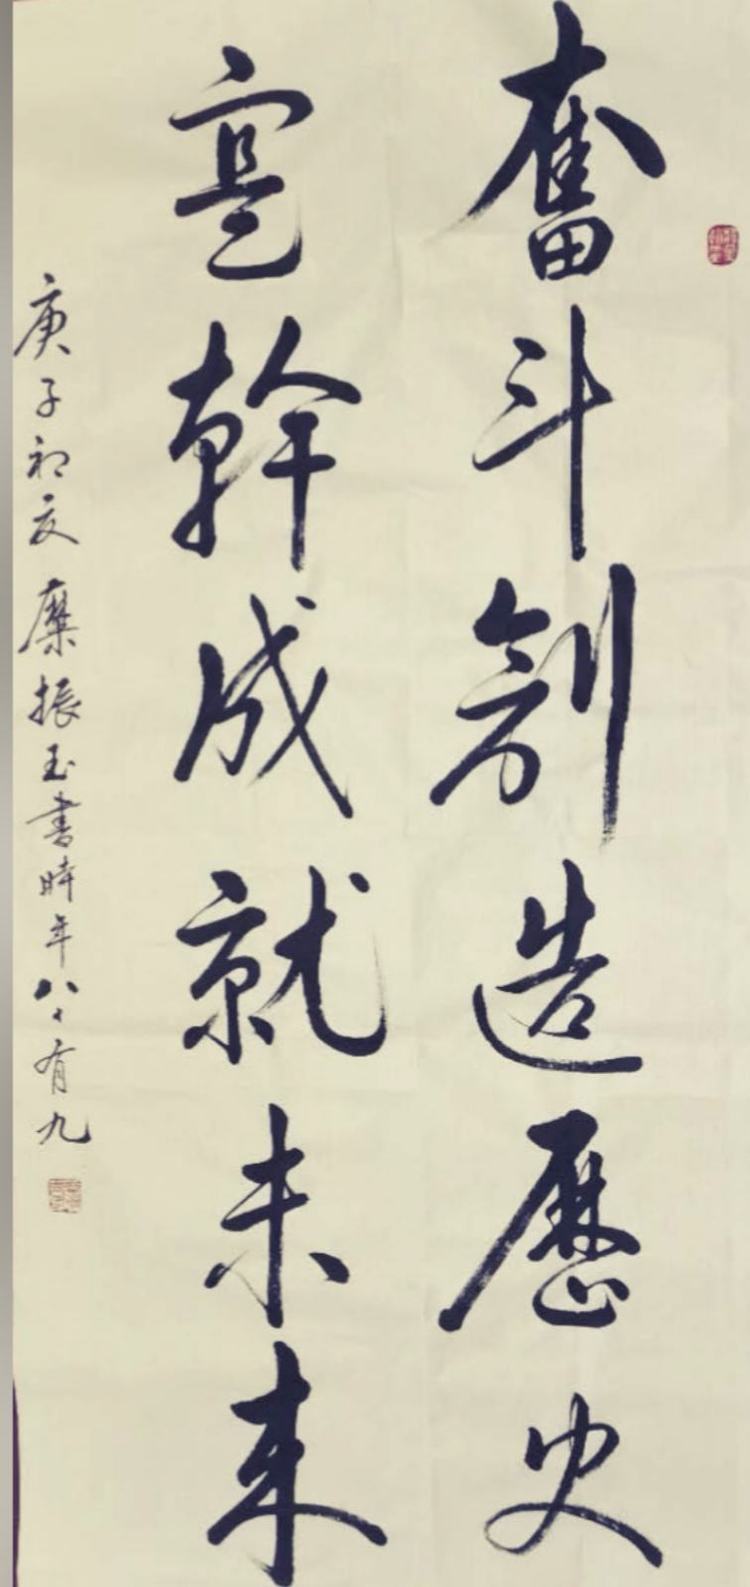 奮斗創造歷史
寔幹成就未來
庚子初夏 糜振玉書時年八十有九